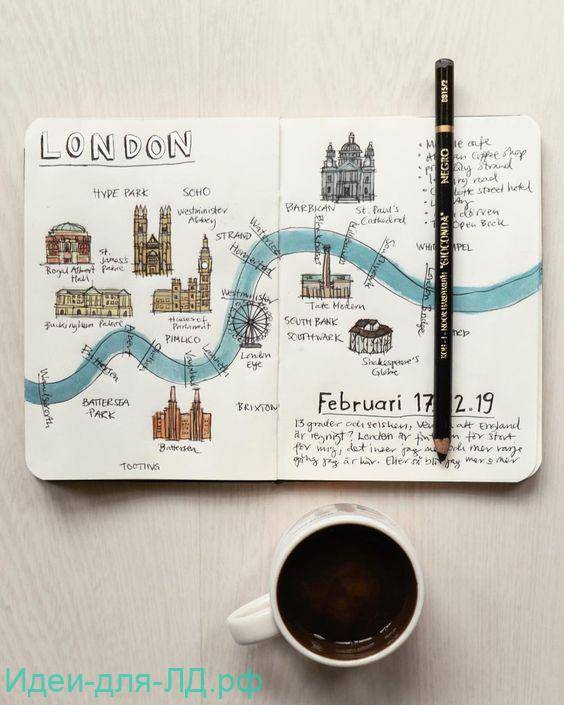 LONDON
HYDE PARK
SOHO
Westminister
Abbey
Royal Albert
Hall
St.
James's
Palace
Buckingham Palace
Houses of
Parliament
STRAND
Hungerford
Waterloo
Westminister
PIMLICO
London
Eye
Wandsworth
Albert
Chelsea
Vauxhall
Lambeth
BATTERSEA
PARK
Battersea
BRIXTON
TOOTING
BARBICAN
St. Paul's
Cathedral
Blackfriars
Southwark
Tate Modern
SOUTH BANK
SOUTHWARK
Shakespeare's
Globe
London Bridge
cafe
Coffee shop
strand
road
street hotel
Open Book
Februari 17 2.19
13 grader och solsken, vem att England
är regnigt? London är för stort
för mig, det inser jag och mer varje
gång jag är här. Eller så blir jag mer & mer
NEGRO
"GIOCONDA"
KOH-I-NOOR HARDTMUTH
8815/2
Идеи-для-ЛД.рф